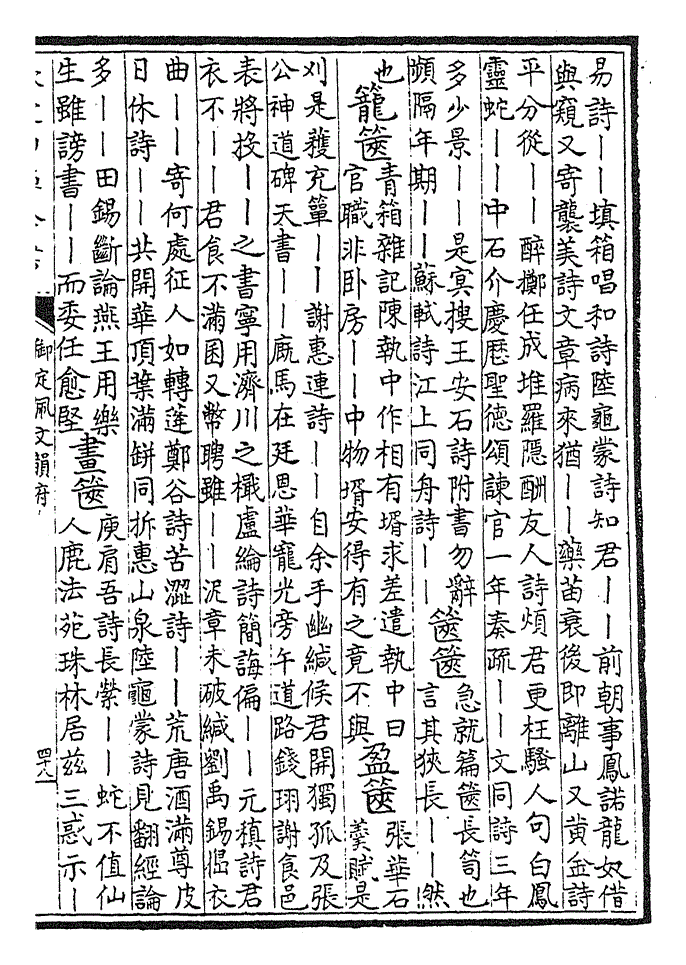 易詩丨丨填箱唱和詩陸龜蒙詩知君丨丨前朝事鳳諾龍奴借
與窺又寄襲美詩文章病來猶丨丨藥苗衰後即離山又黃金詩
平分從丨丨醉擲任成堆羅隱酬友人詩煩君更枉騷人句白鳳
靈蛇丨丨中石介慶曆聖德頌諫官一年奏疏丨丨文同詩三年
多少景丨丨是冥搜王安石詩附書勿辭
頻隔年期丨丨蘇軾詩江上同舟詩丨丨
篋篋
急就篇篋長笥也
言其狹長丨丨然
也
籠篋
青箱雜記陳執中作相有壻求差遣執中曰
官職非卧房丨丨中物壻安得有之竟不與
盈篋
張華石
賦是
刈是穫充簞丨丨謝惠連詩丨丨自余手幽緘候君開獨孤及張
公神道碑天書丨丨廐馬在廷恩華寵光旁午道路錢珝謝食邑
表將投丨丨之書寧用濟川之檝盧綸詩簡誨偏丨丨元稹詩君
衣不丨丨君食不滿囷又幣聘雖丨丨泥章未破緘劉禹錫搗衣
曲丨丨寄何處征人如轉蓬鄭谷詩苦澀詩丨丨荒唐酒滿尊皮
日休詩丨丨共開華頂葉滿缾同拆惠山泉陸龜蒙詩見翻經論
多丨丨田錫斷論燕王用樂
生雖謗書丨丨而委任愈堅
畫篋
庾肩吾詩長縈丨丨蛇不值仙
人鹿法苑珠林居茲三惑示丨
御定佩文韻府
四十八